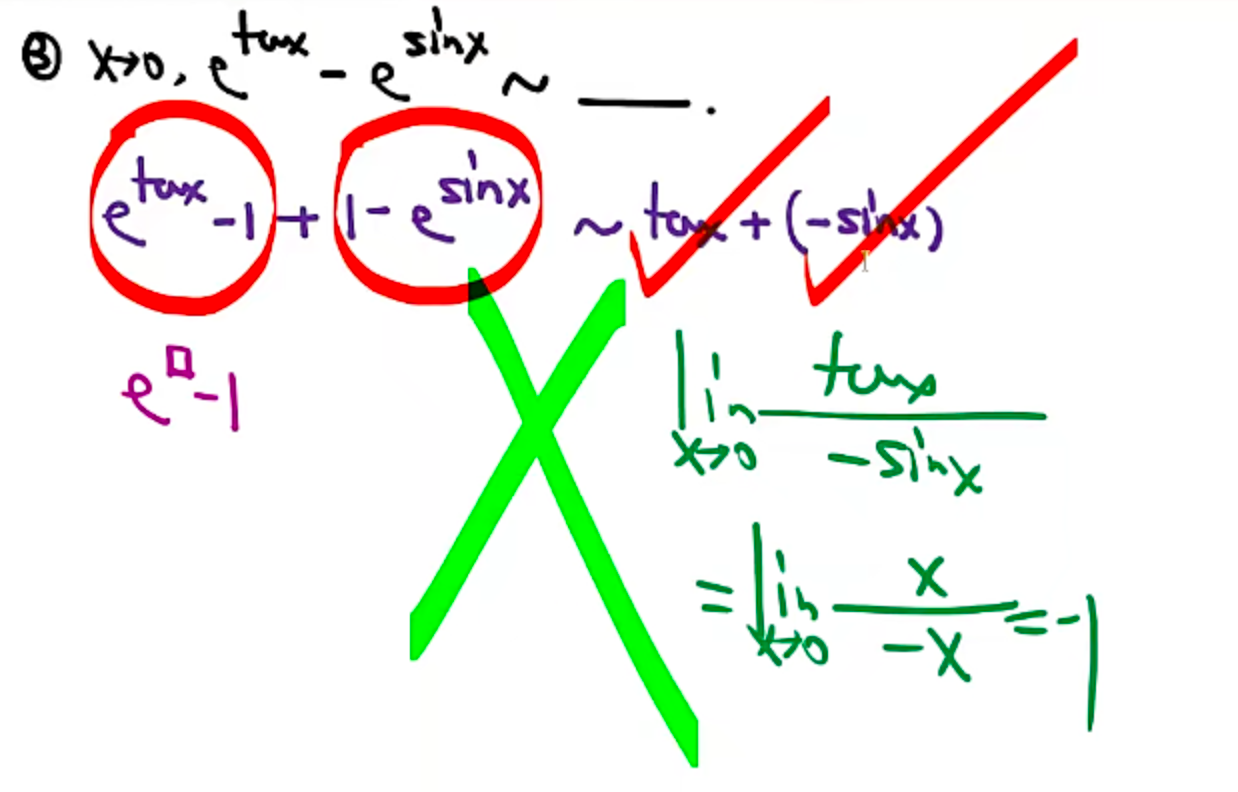 ③ x→0, e^tanx - e^sinx ~ ____.
e^tanx -1 + 1 - e^sinx ~ tanx + (-sinx)
e^□ -1
lim x→0 tanx / -sinx
= lim x→0 x / -x = -1